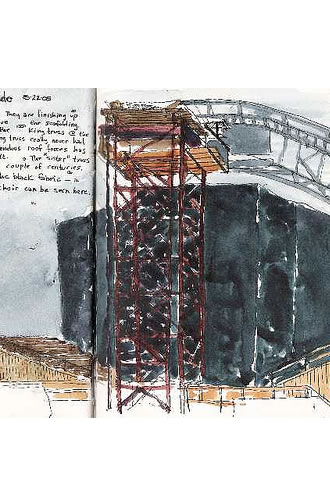 de 5-22-08
They are finishing up
the scaffolding.
King truss @ the
truss really never had
roof forces has
○ The "sister" truss
couple of centuries.
black fabric —
choir can be seen here.